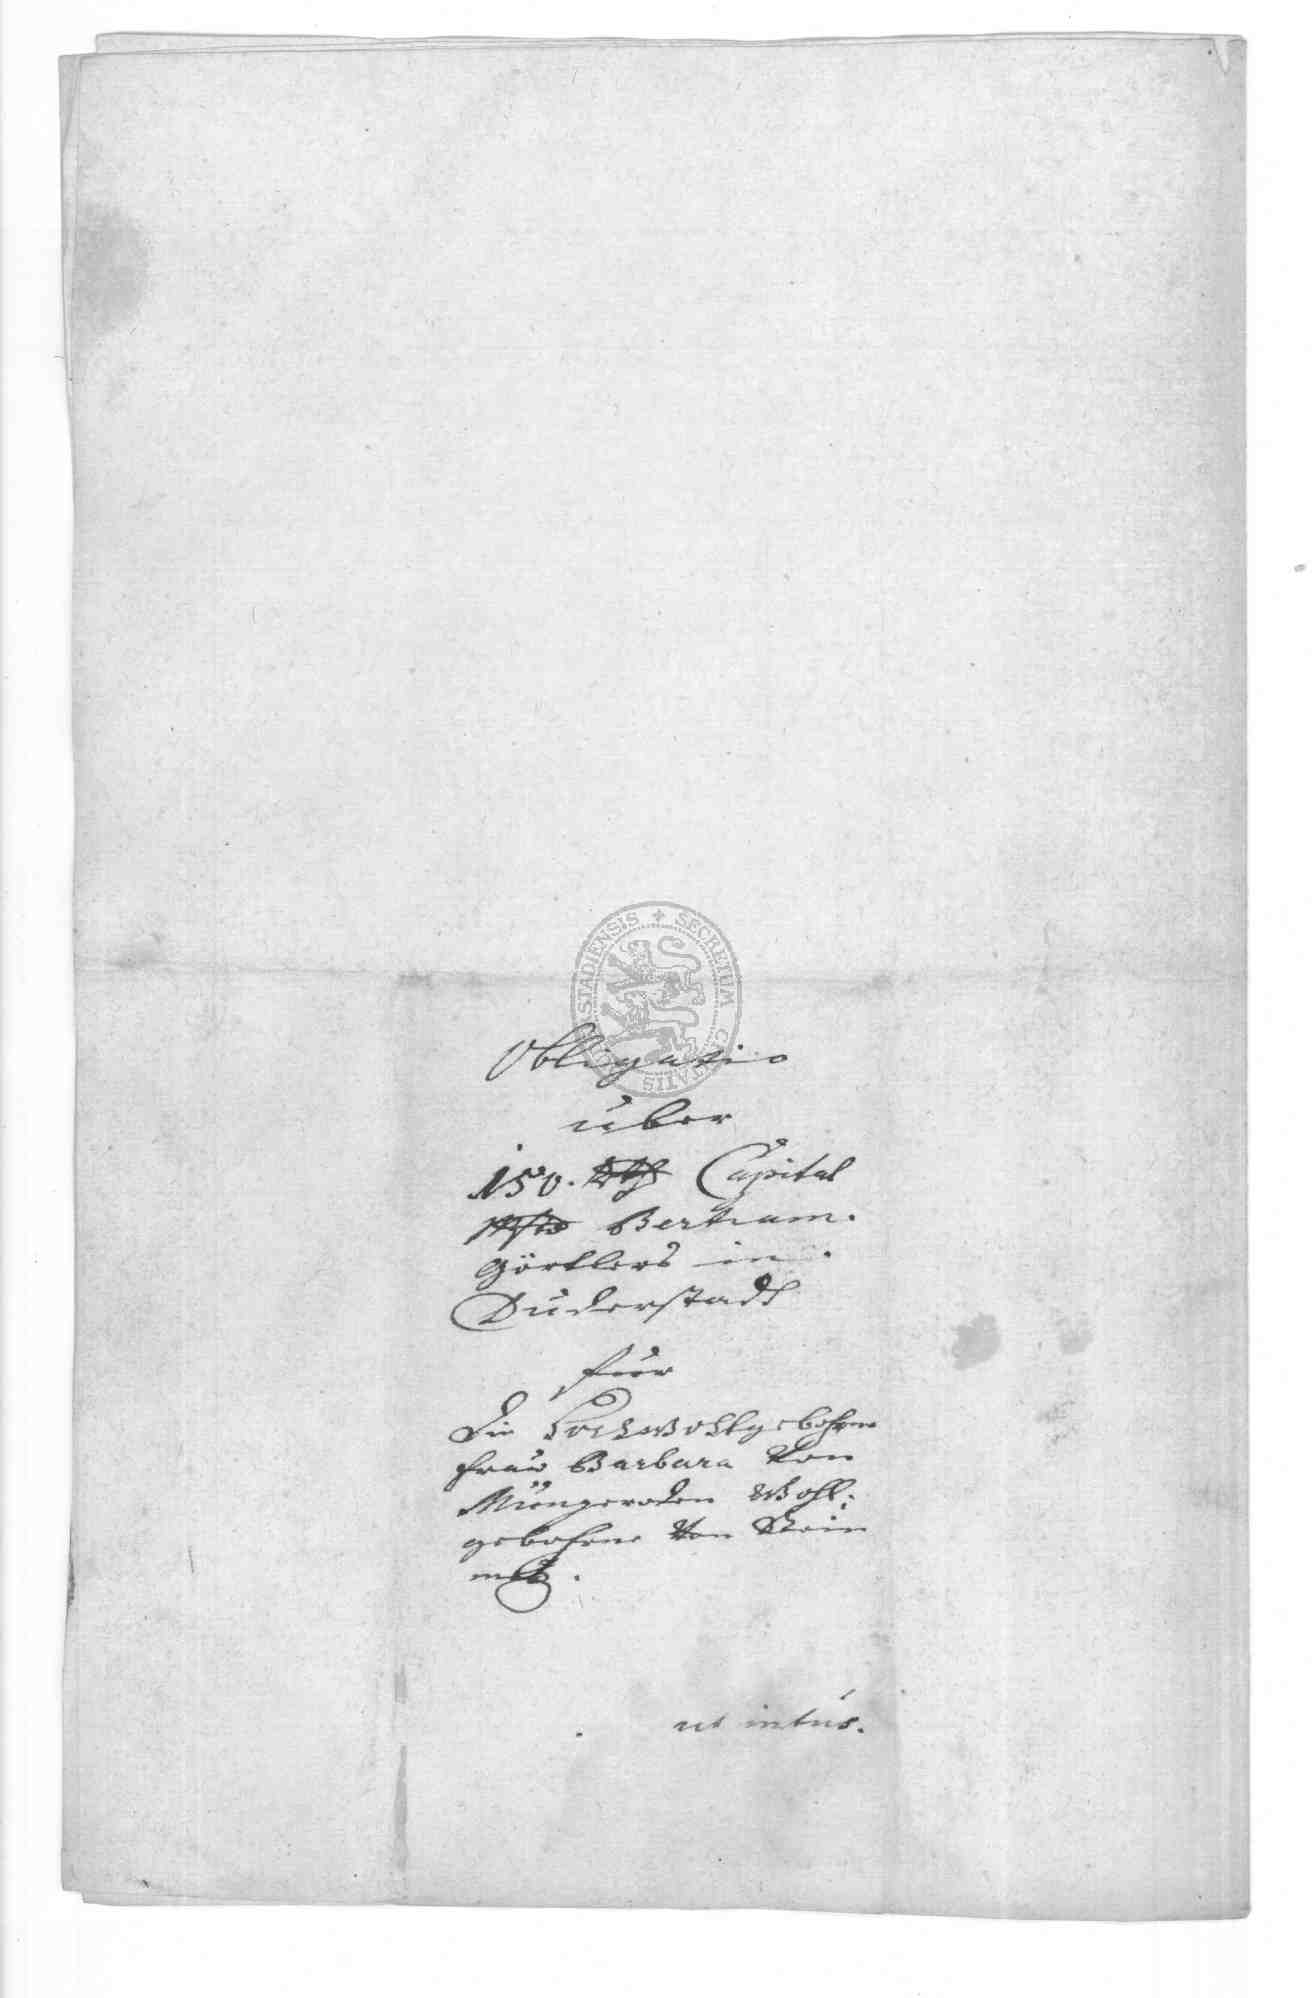 SECRETUM CIVITATIS DUDERSTADIENSIS
Obligatio
über
150. Rthlr Capital
Bertram.
Görtlers in
Duderstadt
für
die Hochwohlgebohrne
Frau Barbara Von
Müngeroden Wohl-
gebohrne Von Stein
metz.
ut intus.